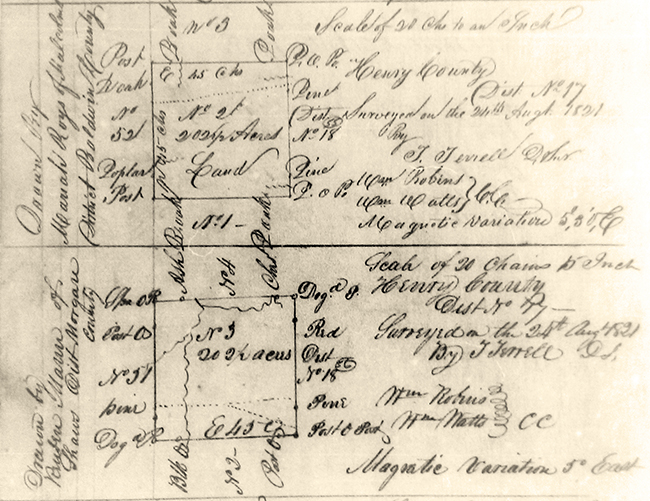 Scale of 20 Chs to an Inch
No 3
Post
P. O. Po.
Henry County
E 45 Chs
Pine
Dist No 17
No
No 2
Dist
Surveyed on the 24th Augt. 1821
52
202½ Acres
No 18
By
T. Terrell D. Sur
Poplar
Land
Pine
Wm Robins
Post
P. O Po.
Wm Watts
C. C.
No 1
Magnetic Variation
Drawn by
Mariah Roys of
District Baldwin County
Ash
No 4
Scale of 20 Chains to Inch
Henry County
Dog d P.
Dist No 17
Post O
No 3
Red
Surveyed on the 24th Augt 1821
202½ acres
Dist
By T Terrell D. S.
No 51
No 18
Pine
Pine
Wm Robins
Wm Watts
CC
E 45 C
Post O Post
Blk O
No 2
Post O
Magnetic Variation 5° East
Drawn by
of
Shaws Dist Morgan
County